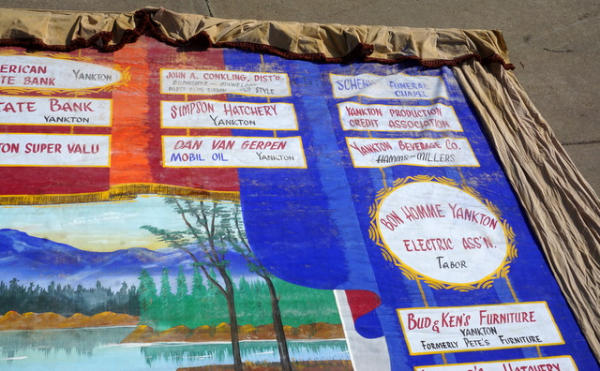 AMERICAN
STATE BANK YANKTON
STATE BANK
YANKTON
SUPER VALU
JOHN A. CONKLING, DIST'R.
BUDWEISER
STYLE
SIMPSON HATCHERY
YANKTON
DAN VAN GERPEN
MOBIL OIL YANKTON
FUNERAL
CHAPEL
YANKTON PRODUCTION
CREDIT ASSOCIATION
YANKTON BEVERAGE CO.
HAMMS-MILLERS
BON HOMME YANKTON
ELECTRIC ASS'N.
TABOR
BUD & KEN'S FURNITURE
YANKTON
FORMERLY PETE'S FURNITURE
HATCHERY